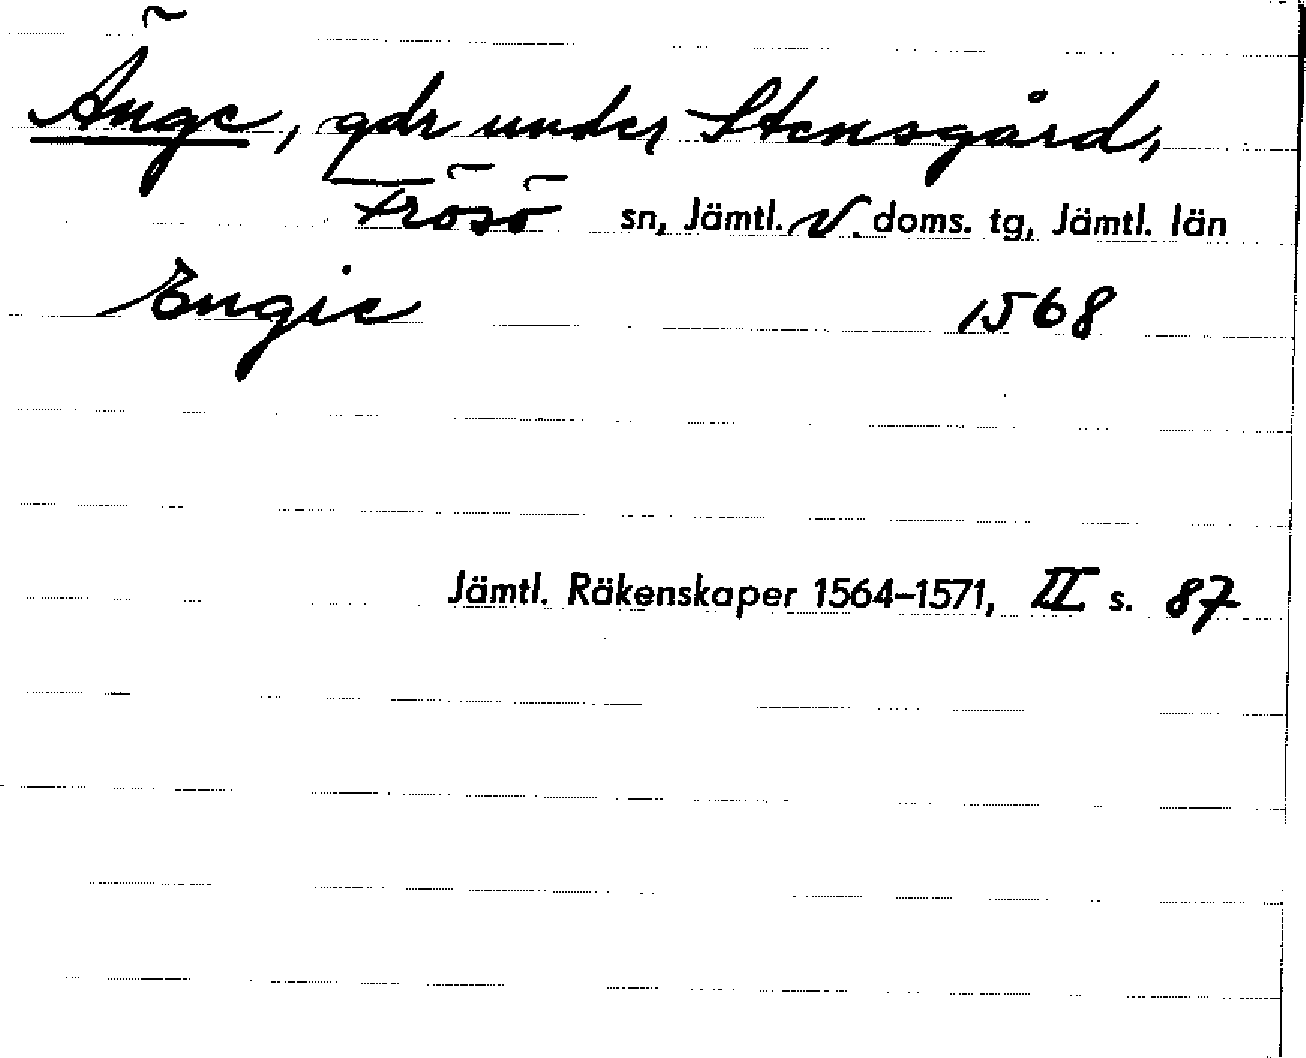 Änge, gdr under Stensgård,
Frösö sn, Jämtl. V. doms. tg, Jämtl. län
Engie 1568
Jämtl. Räkenskaper 1564–1571, II s. 87